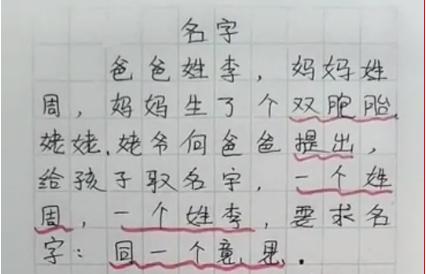 名字
爸爸姓李，妈妈姓
周，妈妈生了个双胞胎，
姥姥.姥爷向爸爸提出，
给孩子取名字，一个姓
周，一个姓李，要求名
字：同一个意思.